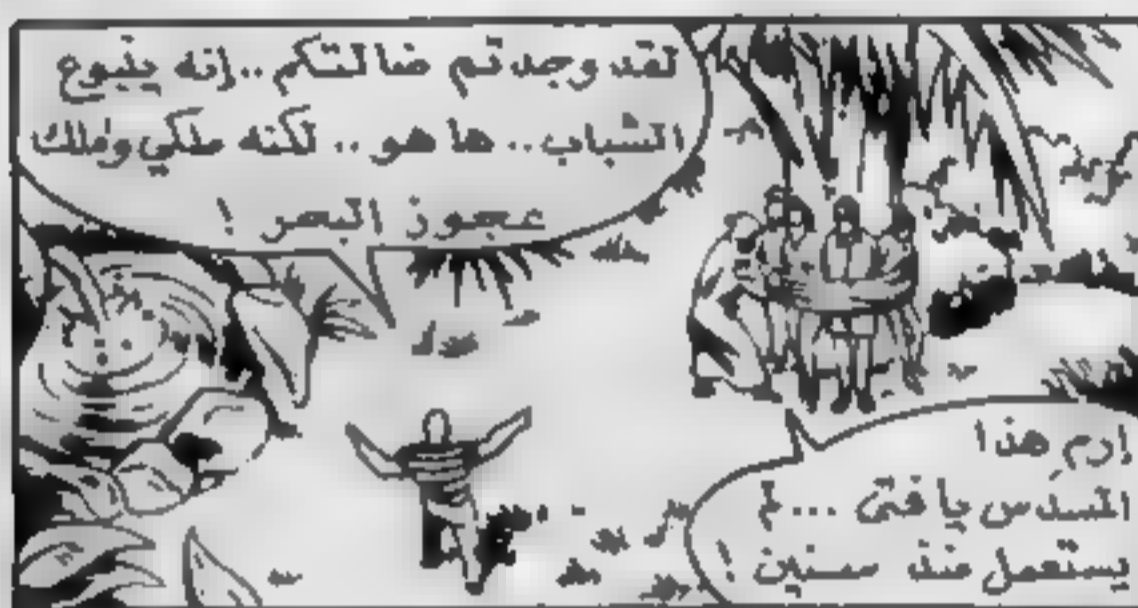 لقد وجدتم ضالتكم..إنه ينبوع
الشباب.. ها هو.. لكنه ملكي وملك
عجوز البحر !
إرمِ هذا
المسدس يا فتى ... لم
يستعمل منذ سنين !